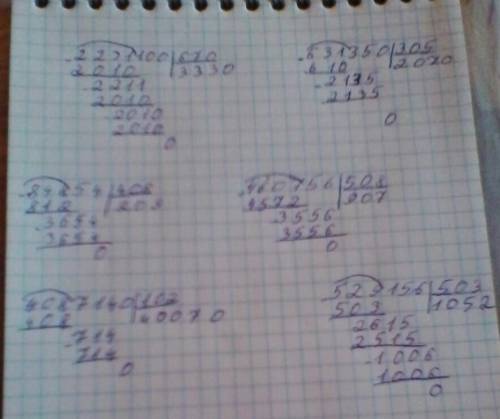 -2231100|670
2010 |3330
-2211
2010
-2010
2010
0
-631350|305
610 |2070
-2135
2135
0
-84854|406
812 |209
-3654
3654
0
-460756|508
4572 |907
-3556
3556
0
-4087140|102
408 |40070
-714
714
0
-529156|503
503 |1052
-2615
2515
-1006
1006
0